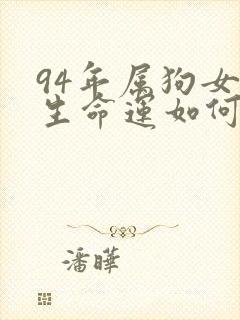 94年属狗女
生命运如何
潘曄